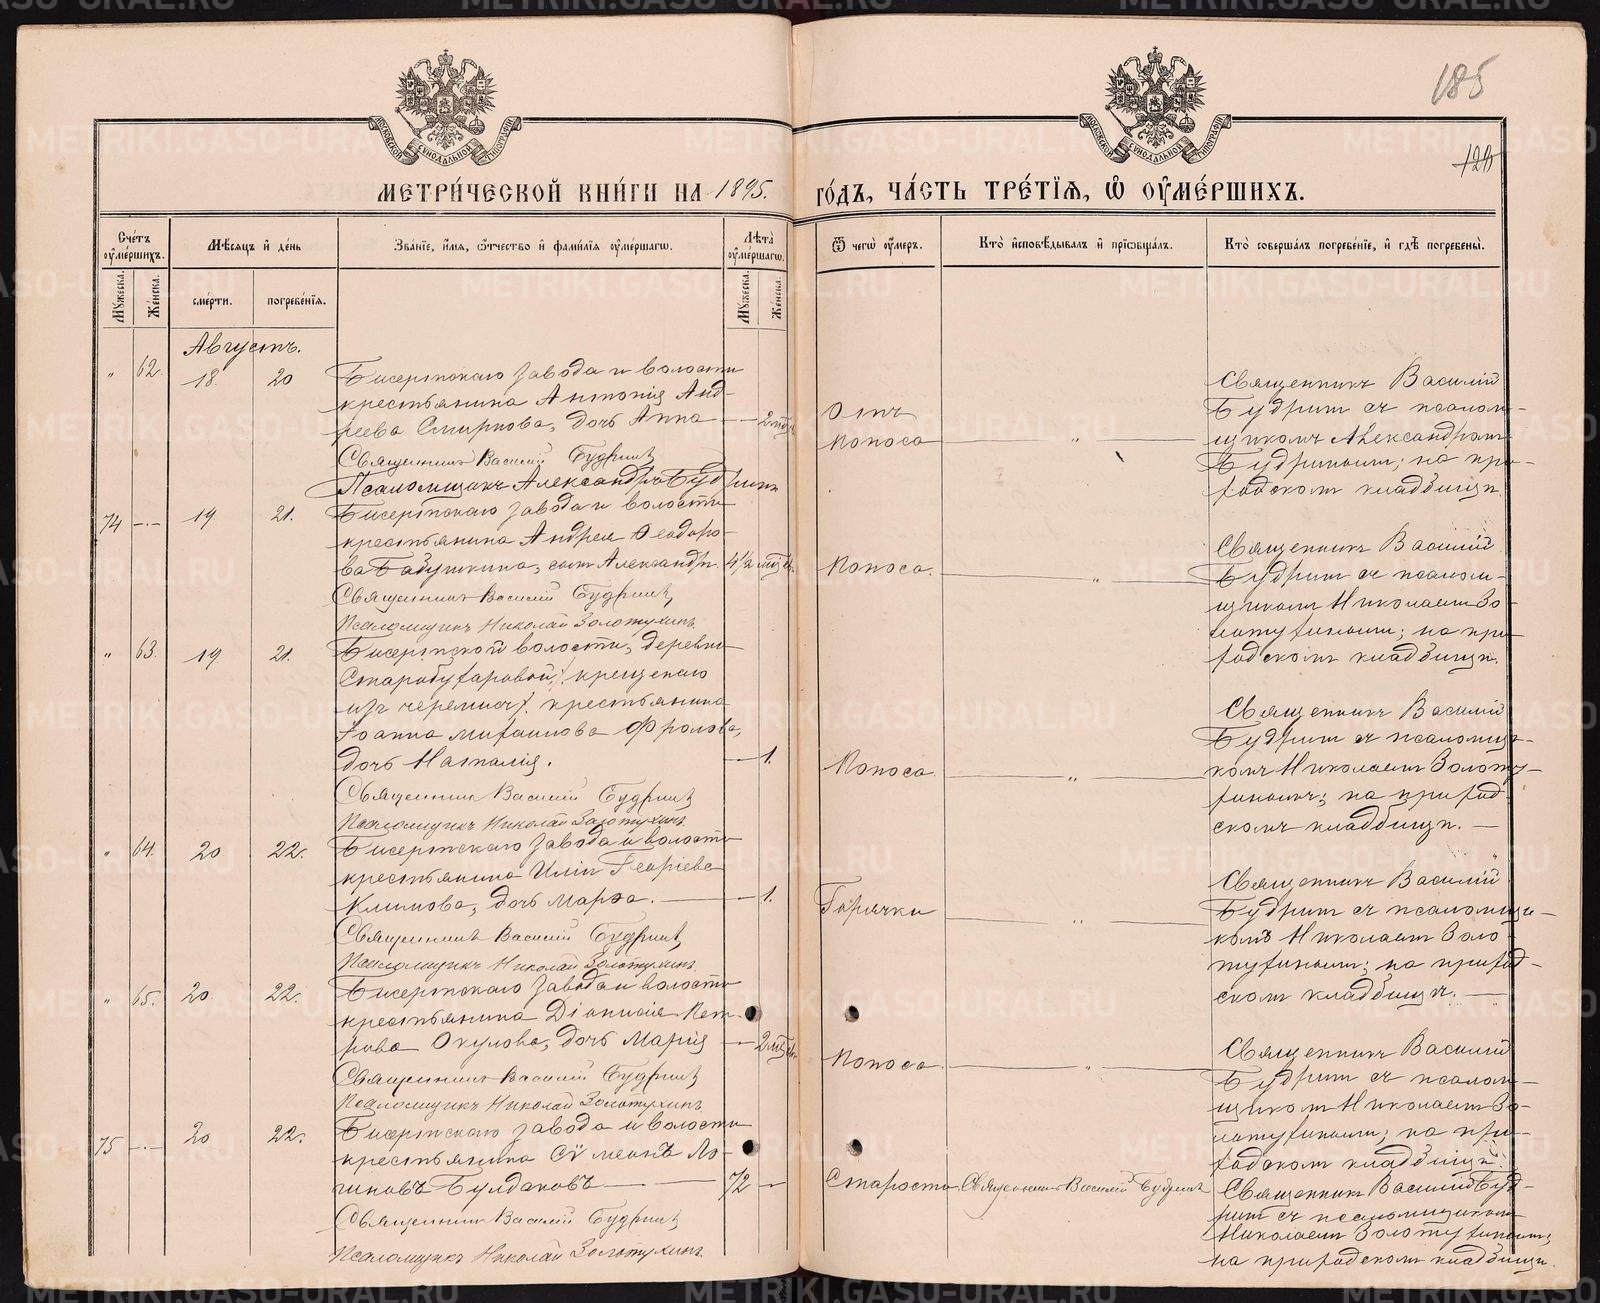 185
120
МЕТРИ́ЧЕСКОЙ КНИ́ГИ НА 1895.
ГО́ДЪ, ЧА́СТЬ ТРЕ́ТЇѦ, Ѡ҆ ОУ҆МЕ́РШИХЪ.
МОСКОВСКОЙ СѴНОДАЛЬНОЙ ТИПОГРАФІИ
МОСКОВСКОЙ СѴНОДАЛЬНОЙ ТИПОГРАФІИ
Сче́тъ оу҆ме́ршихъ.
Мѣ́сѧцъ и҆ де́нь
Зва́нїе, и҆́мѧ, ѻ҆́тчество и҆ фами́лїѧ оу҆ме́ршагѡ.
Лѣ́та оу҆ме́ршагѡ.
Ѿ чегѡ̀ оу҆́меръ.
Кто̀ и҆сповѣ́дывалъ и҆ прїѡбща́лъ.
Кто̀ соверша́лъ погребе́нїе, и҆ гдѣ̀ погребены̀.
Мꙋ́жеска.
Же́нска.
сме́рти.
погребе́нїѧ.
Мꙋ́жеска.
Же́нска.
Августъ.
" 62. 18 20 Бисертскаго завода и волости
крестьянина Антонія Анд-
реева Смирнова, дочь Анна — 2 нед.
Священникъ Василій Будринъ
Псаломщикъ Александръ Будринъ
Отъ
поноса
"
Священникъ Василій
Будринъ съ псалом-
щикомъ Александромъ
Будринымъ; на при-
ходскомъ кладбищѣ.
74 — 19 21. Бисертскаго завода и волости
крестьянина Андрея Ѳеодоро-
ва Бабушкина, сынъ Александръ. 4½ мѣс.
Священникъ Василій Будринъ
Псаломщикъ Николай Золотухинъ
Поноса.
"
Священникъ Василій
Будринъ съ псалом-
щикомъ Николаемъ Зо-
лотухинымъ; на при-
ходскомъ кладбищѣ.
" 63. 19 21. Бисертской волости, деревни
Старобухаровой, /: крещенаго
изъ черемисъ /: крестьянина
Іоанна Михаилова Фролова,
дочь Наталія. — 1.
Священникъ Василій Будринъ
Псаломщикъ Николай Золотухинъ
Поноса.
"
Священникъ Василій
Будринъ съ псаломщи-
комъ Николаемъ Золоту-
хинымъ; на приход-
скомъ кладбищѣ. —
" 64. 20 22. Бисертскаго завода и волости
крестьянина Иліи Георгіева
Климова, дочь Марѳа. — 1.
Священникъ Василій Будринъ
Псаломщикъ Николай Золотухинъ
Горячки
"
Священникъ Василій
Будринъ съ псаломщи-
комъ Николаемъ Золо-
тухинымъ; на приход-
скомъ кладбищѣ. —
" 65. 20 22. Бисертскаго завода и волости
крестьянина Діонисія Пет-
рова Окулова, дочь Марія — 2 мѣс.
Священникъ Василій Будринъ
Псаломщикъ Николай Золотухинъ
Поноса.
"
Священникъ Василій
Будринъ съ псалом-
щикомъ Николаемъ Зо-
лотухинымъ; на при-
ходскомъ кладбищѣ.
75 — 20 22. Бисертскаго завода и волости
крестьянина Сѵмеонъ Ло-
гиновъ Булдаковъ — 72 —
Священникъ Василій Будринъ
Псаломщикъ Николай Золотухинъ
Старости
Священникъ Василій Будринъ
Священникъ Василій Буд-
ринъ съ псаломщикомъ
Николаемъ Золотухинымъ,
на приходскомъ кладбищѣ.
METRIKI.GASO-URAL.RU